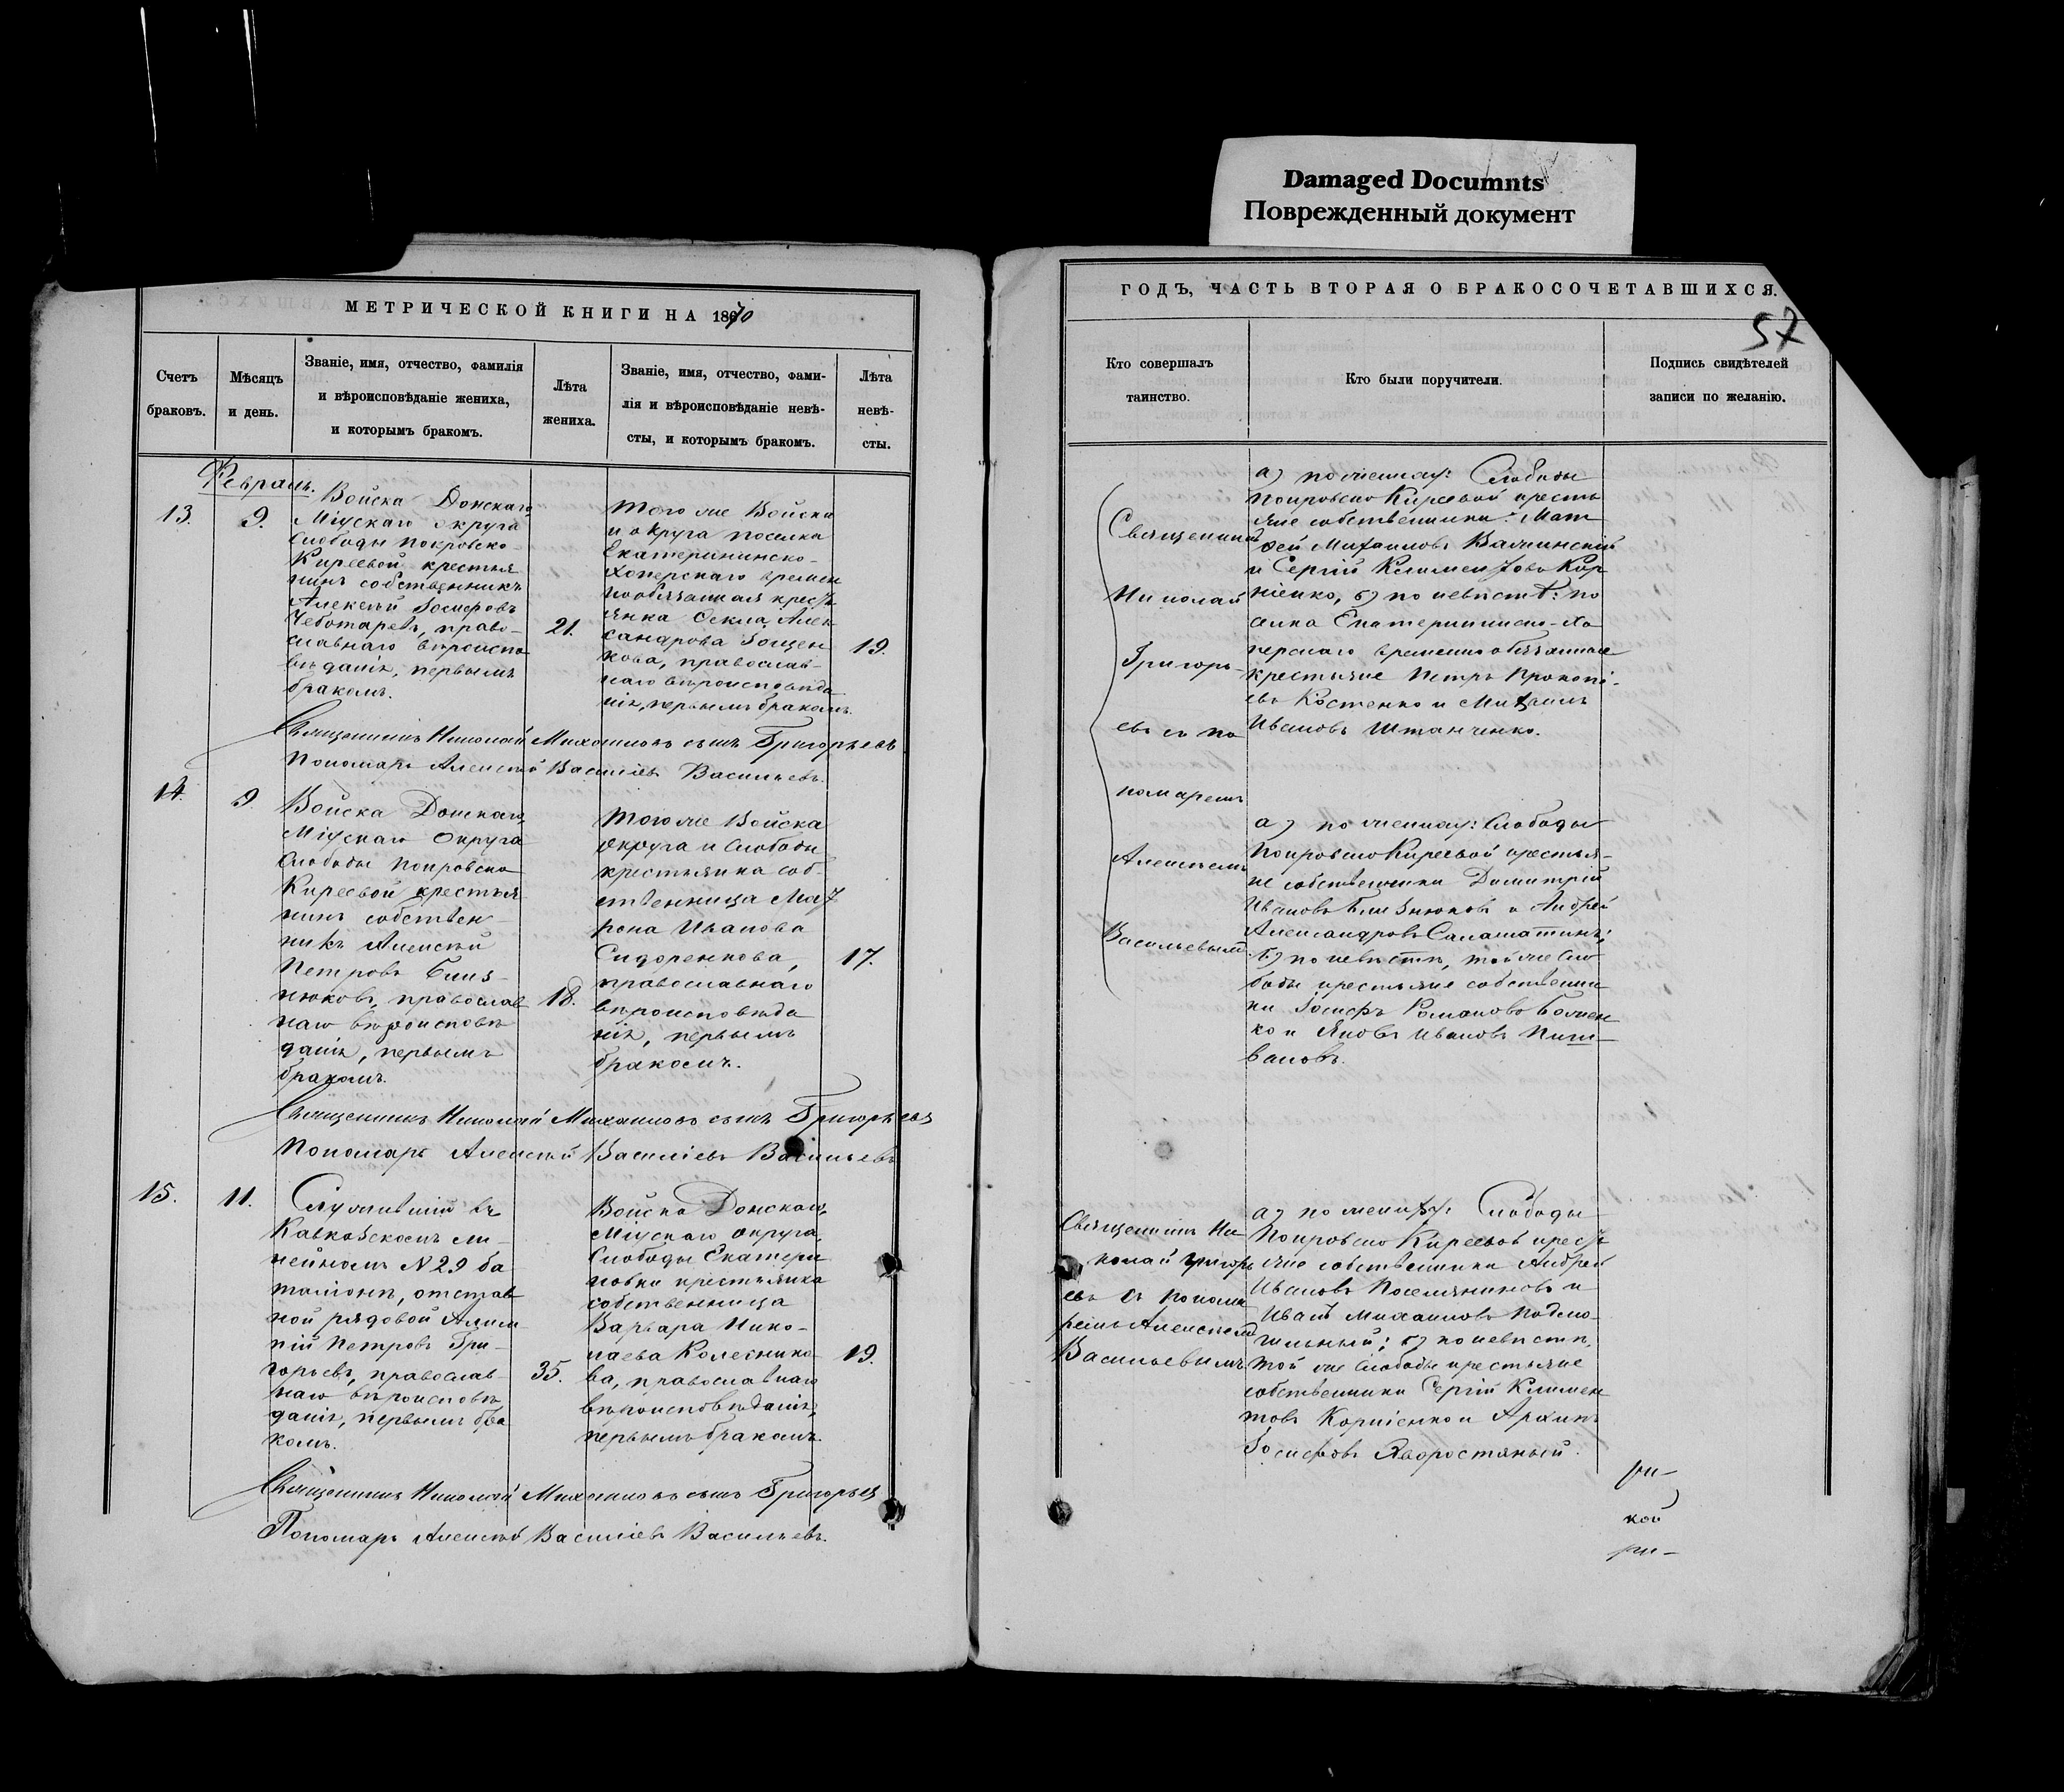 Damaged Documnts
Поврежденный документ
МЕТРИЧЕСКОЙ КНИГИ НА 1870
Счетъ
браковъ.
Мѣсяцъ
и день.
Званіе, имя, отчество, фамилія
и вѣроисповѣданіе жениха,
и которымъ бракомъ.
Лѣта
жениха.
Званіе, имя, отчество, фами-
лія и вѣроисповѣданіе невѣ-
сты, и которымъ бракомъ.
Лѣта
невѣ-
сты.
Февраль.
13.
9.
Войска Донскаго
Міускаго округа
Слободы Покровско-
Киреевой крестья
нинъ собственникъ
Алексѣй Іосифовъ
Чеботаревъ, право-
славнаго вѣроиспо
вѣданія, первымъ
бракомъ.
21.
Того же Войска
и округа поселка
Екатерининско-
Хоперскаго времен
нообязанная кресть
янка Ѳекла Алек
сандрова Зощен
кова, православ-
наго вѣроисповѣда
нія, первымъ бракомъ.
19.
Священникъ Николай Михаиловъ сынъ Григорьевъ
Пономарь Алексѣй Василіевъ Васильевъ.
14.
9.
Войска Донскаго,
Міускаго Округа
Слободы Покровско
Киреевой крестья
нинъ собствен-
никъ Алексѣй
Петровъ Близ-
нюковъ, православ
наго вѣроисповѣ
данія, первымъ
бракомъ.
18.
Того же Войска
округа и Слободы
крестьянка соб-
ственница Мат
рона Иванова
Сидоренкова,
православнаго
вѣроисповѣда
нія, первымъ
бракомъ.
17.
Священникъ Николай Михаиловъ сынъ Григорьевъ
Пономарь Алексѣй Василіевъ Васильевъ
15.
11.
Служившій въ
Кавказскомъ ли-
нейномъ N 29 ба
таліонѣ, отстав
ной рядовой Алим
пій Петровъ Гри-
горьевъ, православ-
наго вѣроисповѣ
данія, первымъ бра
комъ.
35.
Войска Донскаго,
Міускаго округа,
Слободы Екатери
новки крестьянка
собственница
Варвара Нико-
лаева Колеснико
ва, православнаго
вѣроисповѣданія,
первымъ бракомъ.
19.
Священникъ Николай Михаиловъ сынъ Григорьевъ
Пономарь Алексѣй Василіевъ Васильевъ.
ГОДЪ, ЧАСТЬ ВТОРАЯ О БРАКОСОЧЕТАВШИХСЯ.
57
Кто совершалъ
таинство.
Кто были поручители.
Подпись свидѣтелей
записи по желанію.
Священникъ
Николай
Григорь-
евъ съ по
номаремъ
Алексѣемъ
Васильевымъ.
а) по жениху: Слободы
Покровско Киреевой кресть
яне собственники: Мат
ѳей Михаиловъ Калчинскій
и Сергій Климентовъ Кор
ніенко, б) по невѣстѣ: по
селка Екатерининско-Хо
перскаго временно обязанные
крестьяне Петръ Прокопі-
евъ Костенко и Михаилъ
Ивановъ Штанченко.
а) по жениху: Слободы
Покровско Киреевой крестья-
не собственники Димитрій
Ивановъ Близнюковъ и Андрей
Александровъ Саламатинъ;
б) по невѣстѣ, той же Сло
боды крестьяне собственни
ки Іосифъ Романовъ Божен
ко и Яковъ Ивановъ Пиш-
вановъ.
Священникъ Ни
колай Григорь
евъ съ понома
ремъ Алексѣемъ
Васильевымъ
а) по жениху: Слободы
Покровско Киреевой кресть
яне собственники Андрей
Ивановъ Поселяниновъ и
Иванъ Михаиловъ Подмо-
гильный; б) по невѣстѣ,
той же Слободы крестьяне
собственники Сергій Климен
товъ Корніенко и Архипъ
Іосифовъ Яворостяный.
ри-
кой
ри-